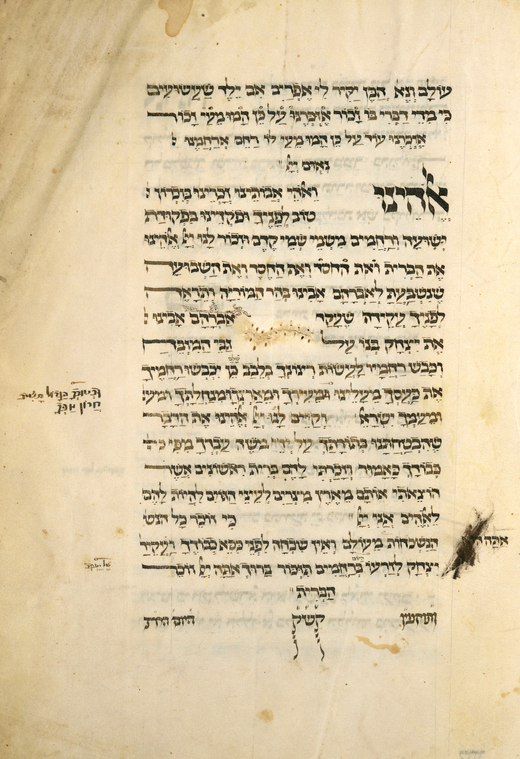 עולם ונא הבן יקיר לי אפרים אם ילד שעשועים
כי מדי דברי בו זכור אזכרנו על כן המו מעי זכור
אזכרנו עוד על כן המו מעי לו רחם ארחמנו :
נאום ייי
אלהינו ואלהי אבותינו זכרינו בזכרון :
טוב לפניך ופקדינו בפקודת
ישועה ורחמים משמי שמי קדם וזכור לנו ייי אלהינו
את הברית ואת החסד ואת השבועה
שנשבעת לאברהם אבינו בהר המוריה ותראה
לפניך עקידה שעקד אברהם אבינו :
את יצחק בנו על גבי המזבח
וכבש רחמיו לעשות רצונך בלבב כן יכבשו רחמיך
את כעסך מעלינו ומעירך ומארצך ומנחלתך
ומעמך ישראל וקיים לנו ייי אלהינו את הדבר
שהבטחתנו בתורתך על ידי משה עבדך מפי
כבודך כאמור וזכרתי להם ברית ראשונים אשר
הוצאתי אותם מארץ מצרים לעיני הגוים להיות להם
לאלהים אני ייי כי זוכר כל הנש
הנשכחות מעולם ואין שכחה לפני כסא כבודך ועקיד
יצחק לזרעו ברחמים תזכור ברוך אתה ייי זוכר
הברית
ותוקעין קשק היום הרת
חרון אפך